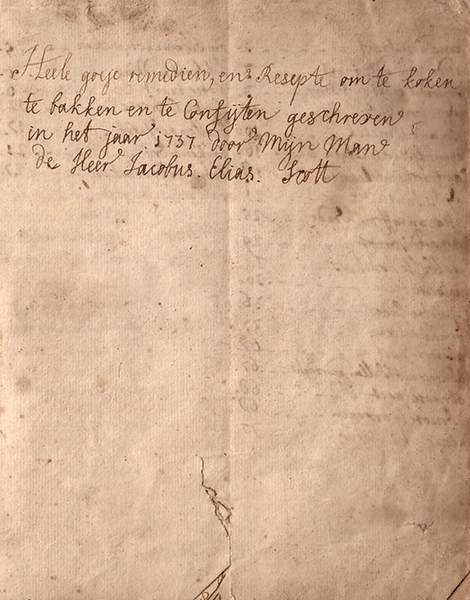 Heele goeje remedien, en Resepte om te koken
te bakken en te Confijten geschreven
in het jaar 1737 door Mijn Man
de Heer Jacobus. Elias. Scott